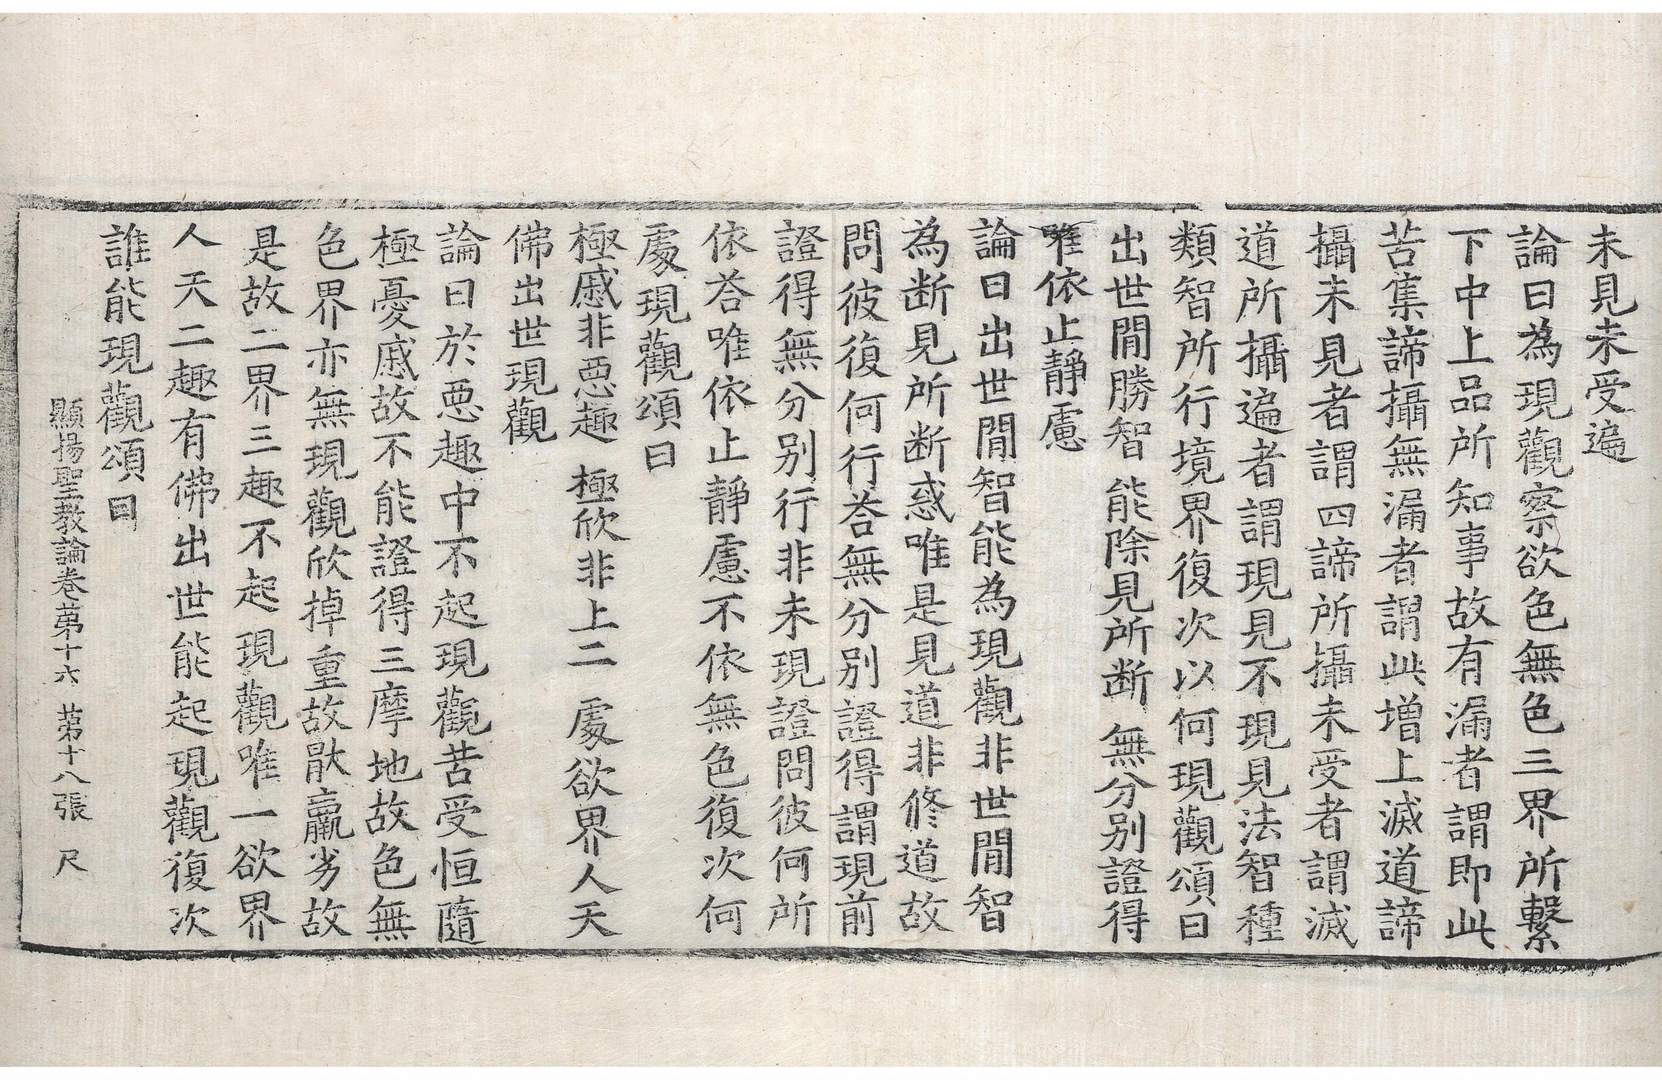 未見未受遍
論曰為現觀察欲色無色三界所繫
下中上品所知事故有漏者謂即此
苦集諦攝無漏者謂此增上滅道諦
攝未見者謂四諦所攝未受者謂滅
道所攝遍者謂現見不現見法智種
類智所行境界復次以何現觀頌曰
出世閒勝智 能除見所断 無分别證得
唯依止靜慮
論曰出世閒智能為現觀非世閒智
為断見所断惑唯是見道非修道故
問彼復何行荅無分别證得謂現前
證得無分别行非未現證問彼何所
依荅唯依止靜慮不依無色復次何
處現觀頌曰
極慼非惡趣 極欣非上二 處欲界人天
佛出世現觀
論曰於惡趣中不起現觀苦受恒隨
極憂慼故不能證得三摩地故色無
色界亦無現觀欣掉重故猒羸劣故
是故二界三趣不起現觀唯一欲界
人天二趣有佛出世能起現觀復次
誰能現觀頌曰
顯揚聖教論卷第十六 第十八張 尺